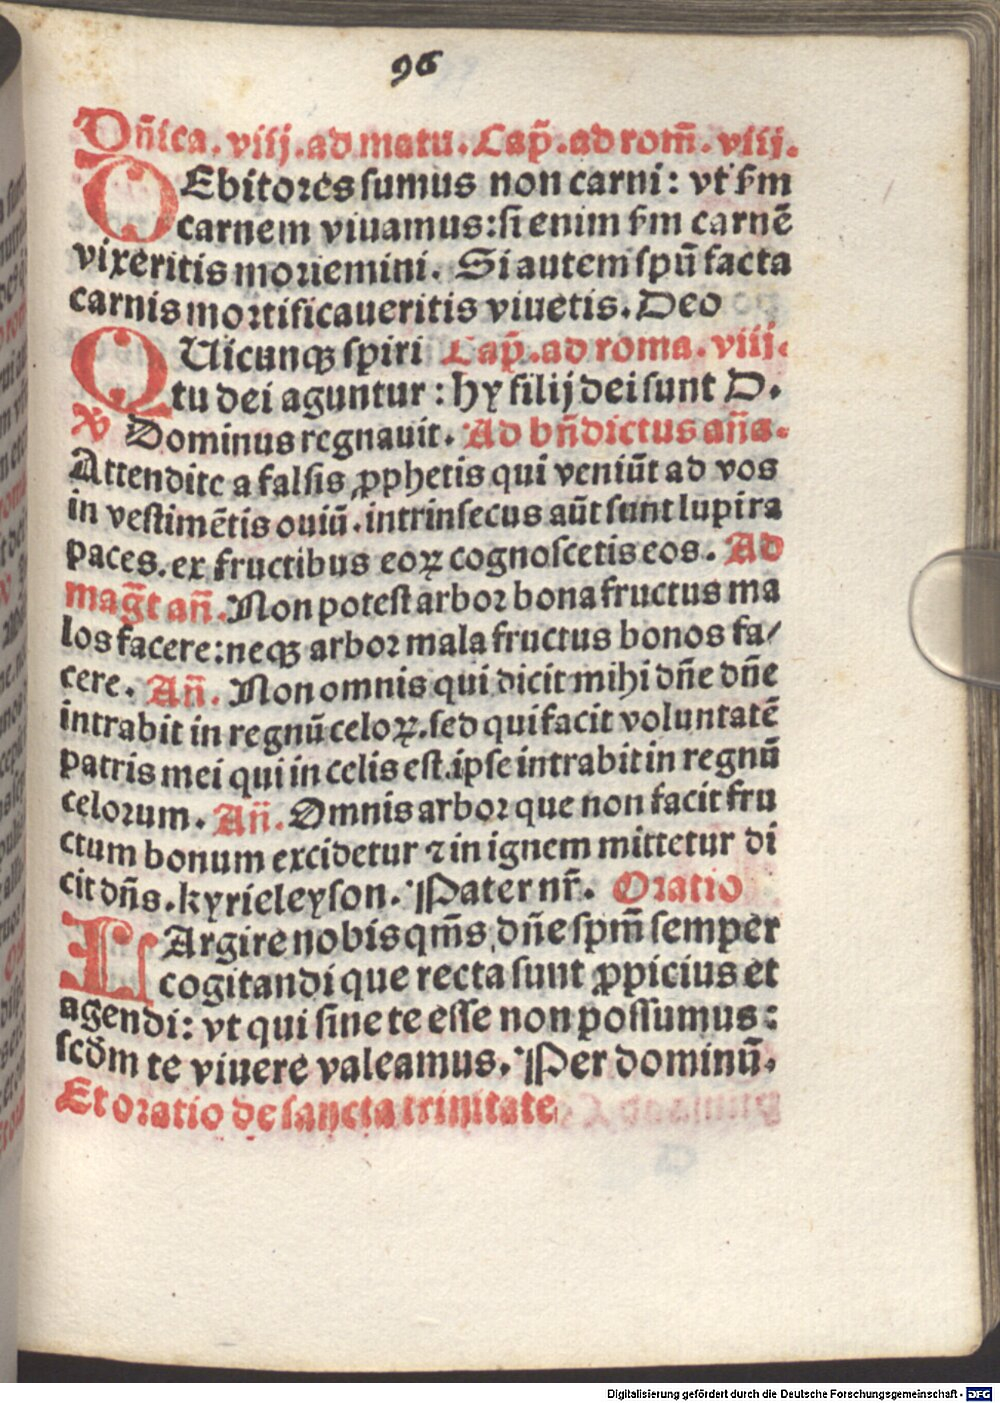 96
Dñica. viij. ad matu. Cap̃. ad rom̃. viij.
DEbitores sumus non carni: vt s̃m
carnem viuamus: si enim s̃m carnē
vixeritis moriemini. Si autem spũ facta
carnis mortificaueritis viuetis. Deo
QUicunqꝫ spiri Cap̃. ad roma. viij.
tu dei aguntur: hy filij dei sunt D.
℣ Dominus regnauit. Ad bñdictus aña.
Attendite a falsis ꝓphetis qui veniũt ad vos
in vestimẽtis ouiũ. intrinsecus aũt sunt lupi ra
paces. ex fructibus eoꝝ cognoscetis eos. Ad
mag̃t añ. Non potest arbor bona fructus ma
los facere: neqꝫ arbor mala fructus bonos fa/
cere. Añ. Non omnis qui dicit mihi dñe dñe
intrabit in regnũ celoꝝ. sed qui facit voluntatē
patris mei qui in celis est. ipse intrabit in regnũ
celorum. Añ. Omnis arbor que non facit fru
ctum bonum excidetur ⁊ in ignem mittetur di
cit dñs. kyrieleyson. Pater nr̃. Oratio
LArgire nobis qm̃s dñe spm̃ semper
cogitandi que recta sunt ꝓpicius et
agendi: vt qui sine te esse non possumus:
scd̃m te viuere valeamus. Per dominũ.
Et oratio de sancta trinitate
Digitalisierung gefördert durch die Deutsche Forschungsgemeinschaft - DFG